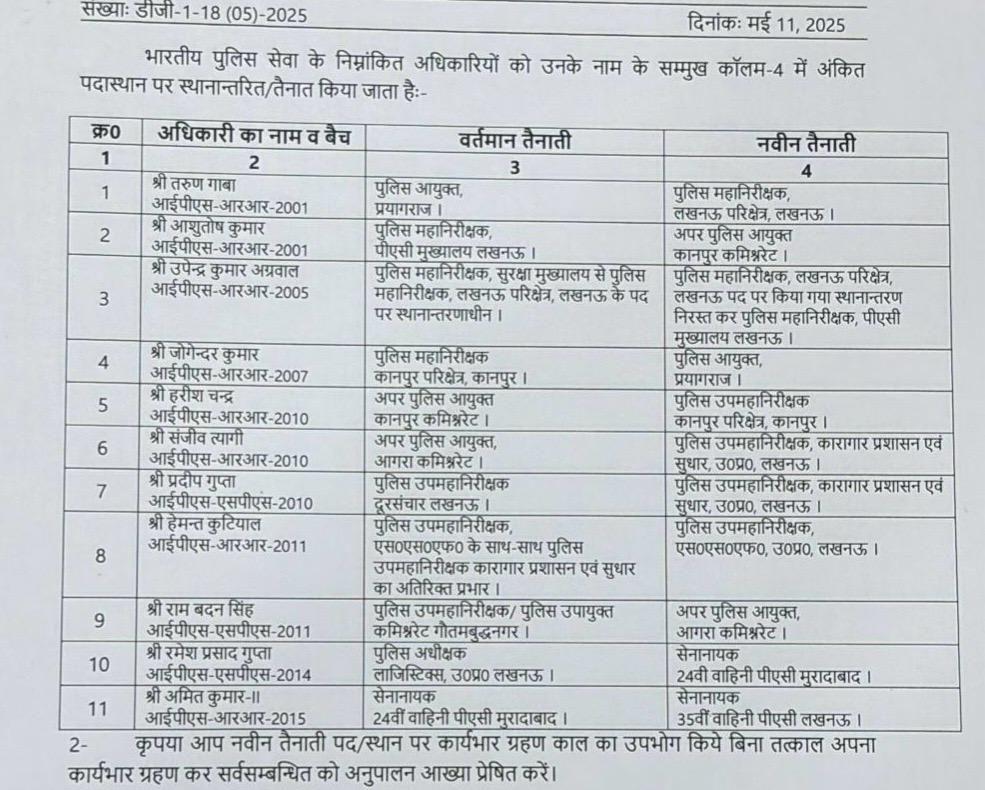 संख्याः डीजी-1-18 (05)-2025
दिनांकः मई 11, 2025
भारतीय पुलिस सेवा के निम्नांकित अधिकारियों को उनके नाम के सम्मुख कॉलम-4 में अंकित
पदास्थान पर स्थानान्तरित/तैनात किया जाता हैः-
क्र0 अधिकारी का नाम व बैच वर्तमान तैनाती नवीन तैनाती
1 2 3 4
1 श्री तरुण गाबा पुलिस आयुक्त, पुलिस महानिरीक्षक,
आईपीएस-आरआर-2001 प्रयागराज। लखनऊ परिक्षेत्र, लखनऊ।
2 श्री आशुतोष कुमार पुलिस महानिरीक्षक, अपर पुलिस आयुक्त
आईपीएस-आरआर-2001 पीएसी मुख्यालय लखनऊ। कानपुर कमिश्नरेट।
3 श्री उपेन्द्र कुमार अग्रवाल पुलिस महानिरीक्षक, सुरक्षा मुख्यालय से पुलिस पुलिस महानिरीक्षक, लखनऊ परिक्षेत्र,
आईपीएस-आरआर-2005 महानिरीक्षक, लखनऊ परिक्षेत्र, लखनऊ के पद लखनऊ पद पर किया गया स्थानान्तरण
पर स्थानान्तरणाधीन। निरस्त कर पुलिस महानिरीक्षक, पीएसी
मुख्यालय लखनऊ।
4 श्री जोगेन्दर कुमार पुलिस महानिरीक्षक पुलिस आयुक्त,
आईपीएस-आरआर-2007 कानपुर परिक्षेत्र, कानपुर। प्रयागराज।
5 श्री हरीश चन्द्र अपर पुलिस आयुक्त पुलिस उपमहानिरीक्षक
आईपीएस-आरआर-2010 कानपुर कमिश्नरेट। कानपुर परिक्षेत्र, कानपुर।
6 श्री संजीव त्यागी अपर पुलिस आयुक्त, पुलिस उपमहानिरीक्षक, कारागार प्रशासन एवं
आईपीएस-आरआर-2010 आगरा कमिश्नरेट। सुधार, उ0प्र0, लखनऊ।
7 श्री प्रदीप गुप्ता पुलिस उपमहानिरीक्षक पुलिस उपमहानिरीक्षक, कारागार प्रशासन एवं
आईपीएस-एसपीएस-2010 दूरसंचार लखनऊ। सुधार, उ0प्र0, लखनऊ।
8 श्री हेमन्त कुटियाल पुलिस उपमहानिरीक्षक, पुलिस उपमहानिरीक्षक,
आईपीएस-आरआर-2011 एस0एस0एफ0 के साथ-साथ पुलिस एस0एस0एफ0, उ0प्र0, लखनऊ।
उपमहानिरीक्षक कारागार प्रशासन एवं सुधार
का अतिरिक्त प्रभार।
9 श्री राम बदन सिंह पुलिस उपमहानिरीक्षक/ पुलिस उपायुक्त अपर पुलिस आयुक्त,
आईपीएस-एसपीएस-2011 कमिश्नरेट गौतमबुद्धनगर। आगरा कमिश्नरेट।
10 श्री रमेश प्रसाद गुप्ता पुलिस अधीक्षक सेनानायक
आईपीएस-एसपीएस-2014 लाजिस्टिक्स, उ0प्र0 लखनऊ। 24वी वाहिनी पीएसी मुरादाबाद।
11 श्री अमित कुमार-II सेनानायक सेनानायक
आईपीएस-आरआर-2015 24वीं वाहिनी पीएसी मुरादाबाद। 35वीं वाहिनी पीएसी लखनऊ।
2- कृपया आप नवीन तैनाती पद/स्थान पर कार्यभार ग्रहण काल का उपभोग किये बिना तत्काल अपना
कार्यभार ग्रहण कर सर्वसम्बन्धित को अनुपालन आख्या प्रेषित करें।